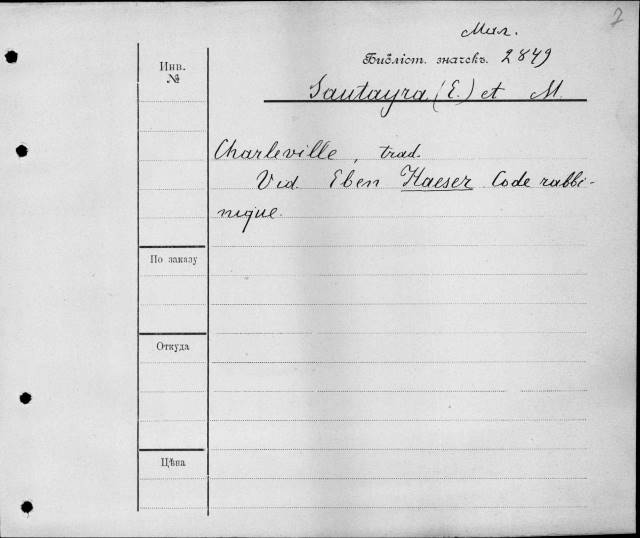 2
Мал.
Библіот. значекъ. 2849
Инв.
№
Sautayra (E.) et M.
Charleville, trad.
Vid. Eben Haeser Code rabbi-
nique.
По заказу
Откуда
Цѣна